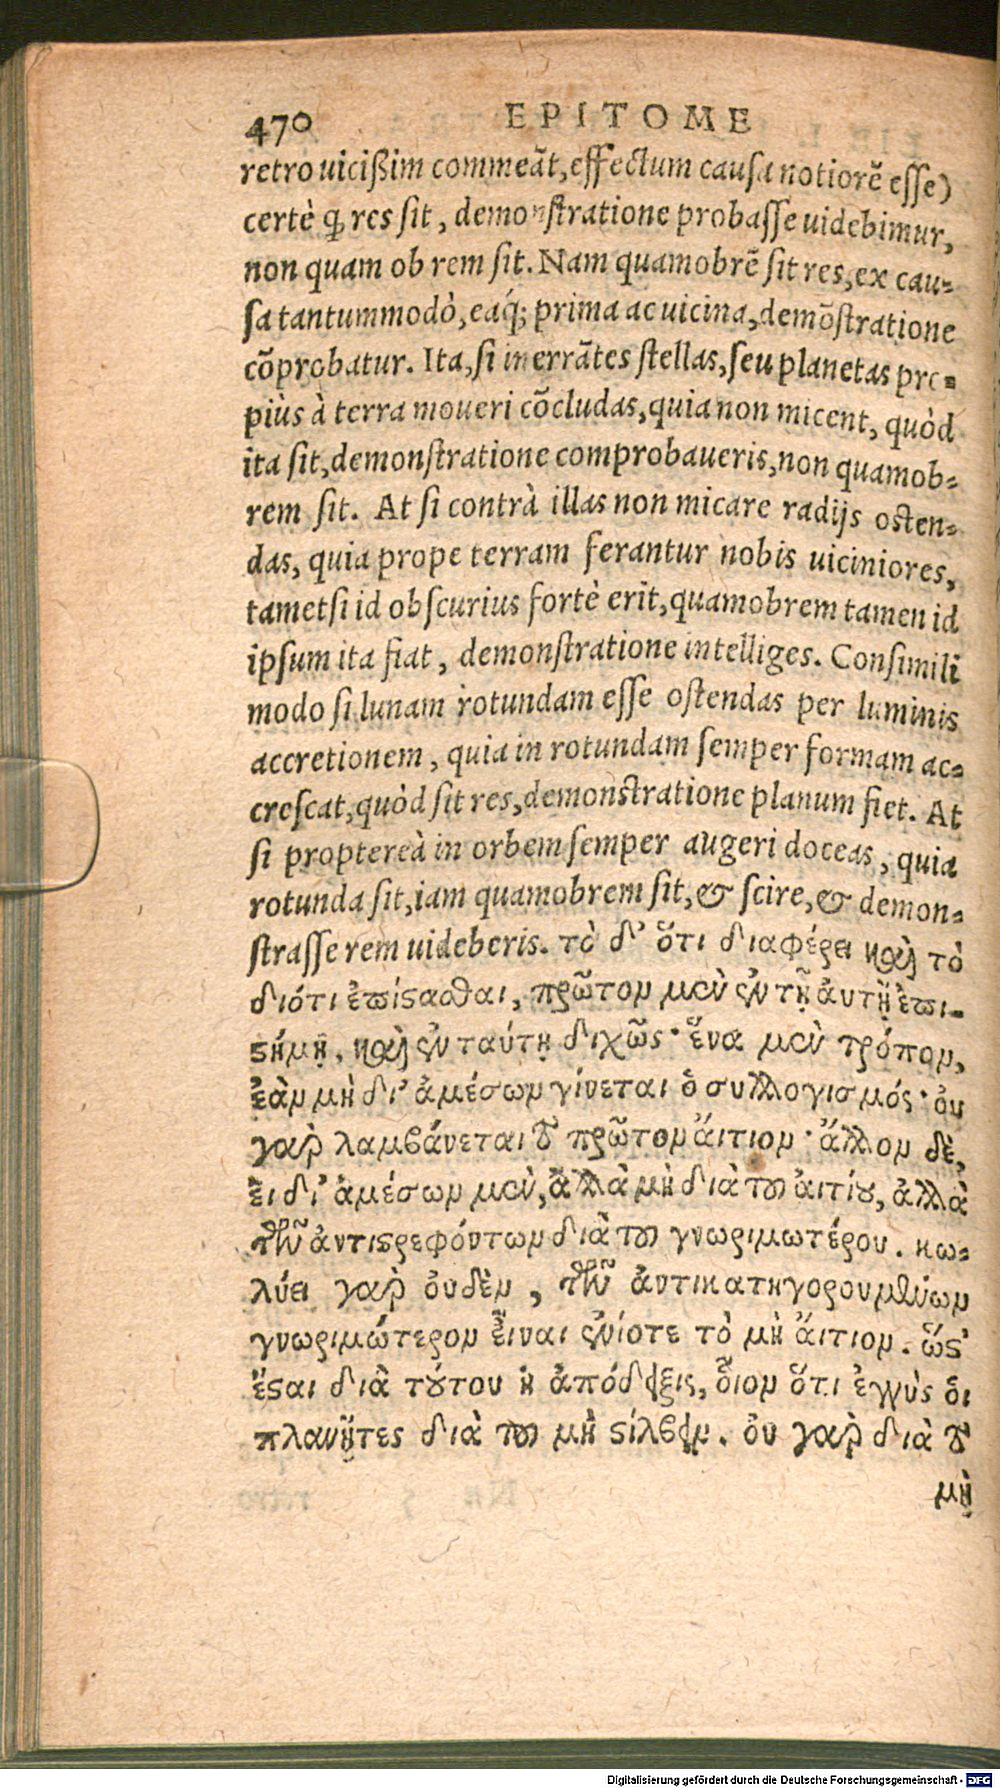 470 EPITOME
retro uicißim commeāt, effectum causa notiorē esse)
certè ꝙ res sit, demonstratione probasse uidebimur,
non quam ob rem sit. Nam quamobrē sit res, ex cau-
sa tantummodò, eaq́; prima ac uicina, demōstratione
cōprobatur. Ita, si inerrātes stellas, seu planetas pro-
piùs à terra moueri cōcludas, quia non micent, quòd
ita sit, demonstratione comprobaueris, non quamob-
rem sit. At si contrà illas non micare radijs osten-
das, quia prope terram ferantur nobis uiciniores,
tametsi id obscurius fortè erit, quamobrem tamen id
ipsum ita fiat, demonstratione intelliges. Consimili
modo si lunam rotundam esse ostendas per luminis
accretionem, quia in rotundam semper formam ac-
crescat, quòd sit res, demonstratione planum fiet. At
si proptereà in orbem semper augeri doceas, quia
rotunda sit, iam quamobrem sit, & scire, & demon-
strasse rem uideberis. τὸ δ' ὅτι διαφέρει καὶ τὸ
διότι ἐπίϛασθαι, πρῶτον μὲν ἐν τῇ ἀυτῇ ἐπι-
ϛήμῃ, καὶ ἐν ταύτῃ διχῶς· ἕνα μὲν τρόπον,
ἐὰν μὴ δι' ἀμέσων γίνεται ὁ συλλογισμός· ὀυ
γὰρ λαμβάνεται τὸ πρῶτον ἄιτιον· ἄλλον δὲ,
ἐι δι' ἀμέσων μὲν, ἀλλὰ μὴ διὰ τοῦ ἀιτίου, ἀλλὰ
τῶν ἀντιϛρεφόντων διὰ τοῦ γνωριμωτέρου. κω-
λύει γὰρ ὀυδὲν, τῶν ἀντικατηγορουμένων
γνωριμώτερον ἔιναι ἐνίοτε τὸ μὴ ἄιτιον. ὥϛ'
ἔϛαι διὰ τούτου ἡ ἀπόδειξις, ὅιον ὅτι ἐγγὺς ὁι
πλανῆτες διὰ τοῦ μὴ ϛίλβειν. ὀυ γὰρ διὰ τὸ
μὴ
Digitalisierung gefördert durch die Deutsche Forschungsgemeinschaft - DFG